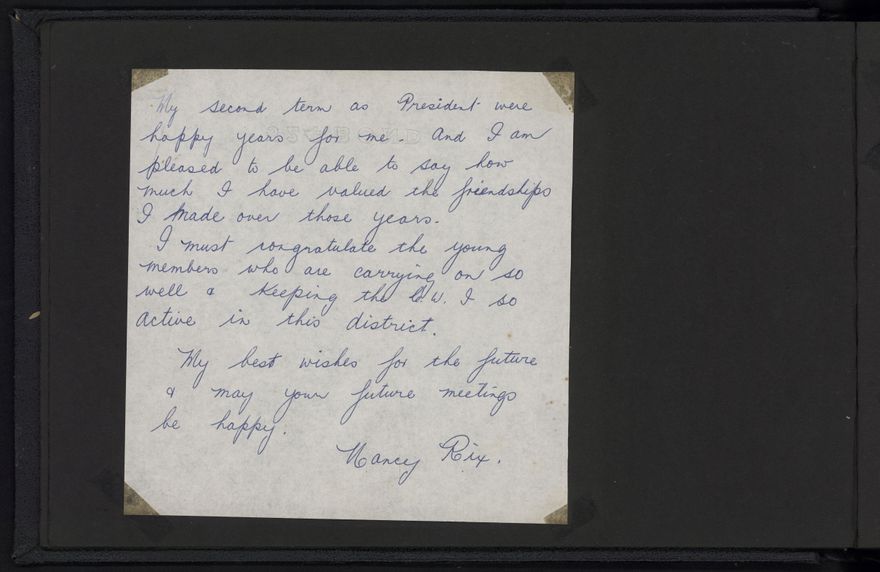 My second term as President were
happy years for me. And I am
pleased to be able to say how
much I have valued the friendships
I made over those years.
I must congratulate the young
members who are carrying on so
well & keeping the C.W.I so
active in this district.
My best wishes for the future
& may your future meetings
be happy.
Nancy Rix.